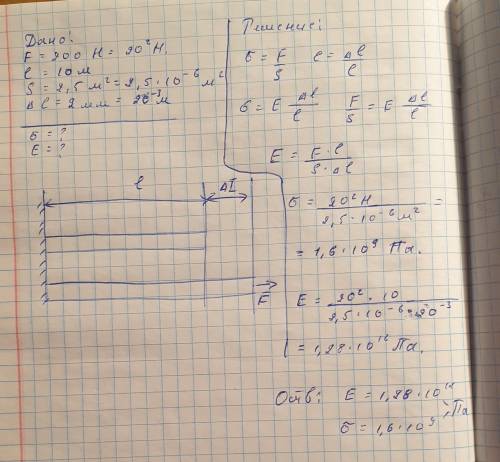 Дано:
F = 200 Н = 20² Н.
l = 10 м
S = 2,5 м² = 2,5 · 10⁻⁶ м²
Δl = 2 мм = 20⁻³ м
б = ?
E = ?
l
Δl
F
Решение:
б = F/S ε = Δl/l
б = E Δl/l F/S = E Δl/l
E = F · l / S · Δl
б = 20² Н / 2,5 · 10⁻⁶ м² =
= 1,6 · 10⁹ Па.
E = 20² · 10 / 2,5 · 10⁻⁶ · 20⁻³
= 1,28 · 10¹² Па.
Отв: E = 1,28 · 10¹²
б = 1,6 · 10⁹ ; Па